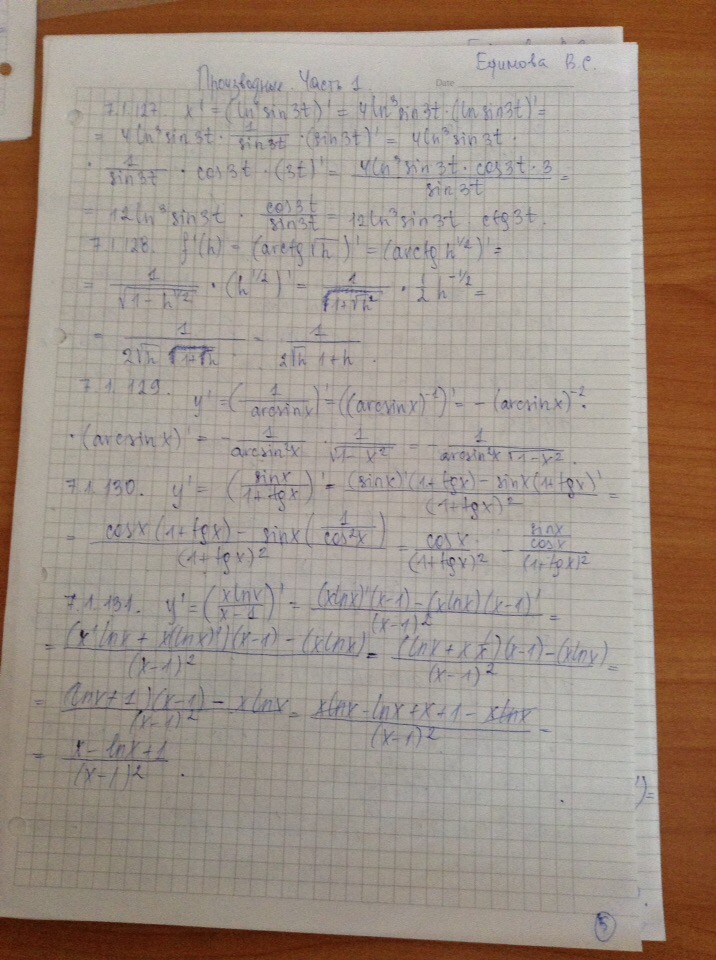 Ефимова В.С.
Производные. Часть 1. Date
7.1.127. x' = (ln⁴ sin 3t)' = 4 ln³ sin 3t · (ln sin 3t)' =
= 4 ln³ sin 3t · 1/sin 3t · (sin 3t)' = 4 ln³ sin 3t ·
· 1/sin 3t · cos 3t · (3t)' = (4 ln³ sin 3t · cos 3t · 3)/sin 3t =
= 12 ln³ sin 3t · cos 3t/sin 3t = 12 ln³ sin 3t · ctg 3t.
7.1.128. f'(h) = (arctg √h)' = (arctg h^(1/2))' =
= 1/√(1 - h^(1/2)²) · (h^(1/2))' = 1/(1+√h²) · 1/2 h^(-1/2) =
= 1/(2√h (1+√h)) = 1/(2√h 1+h).
7.1.129. y' = (1/arcsin x)' = ((arcsin x)⁻¹)' = - (arcsin x)⁻² ·
· (arcsin x)' = - 1/arcsin²x · 1/√(1-x²) = - 1/(arcsin²x √(1-x²)).
7.1.130. y' = (sin x/(1+tg x))' = ((sin x)'(1+tg x) - sin x (1+tg x)')/(1+tg x)² =
= (cos x (1+tg x) - sin x (1/cos²x))/(1+tg x)² = cos x/(1+tg x)² - (sin x/cos x)/(1+tg x)²
7.1.131. y' = (x ln x/(x-1))' = ((x ln x)'(x-1) - (x ln x)(x-1)')/(x-1)² =
= ((x' ln x + x(ln x)')(x-1) - (x ln x))/(x-1)² = ((ln x + x 1/x)(x-1) - (x ln x))/(x-1)² =
= ((ln x + 1)(x-1) - x ln x)/(x-1)² = (x ln x - ln x + x + 1 - x ln x)/(x-1)² =
= (x - ln x + 1)/(x-1)².
')=
5